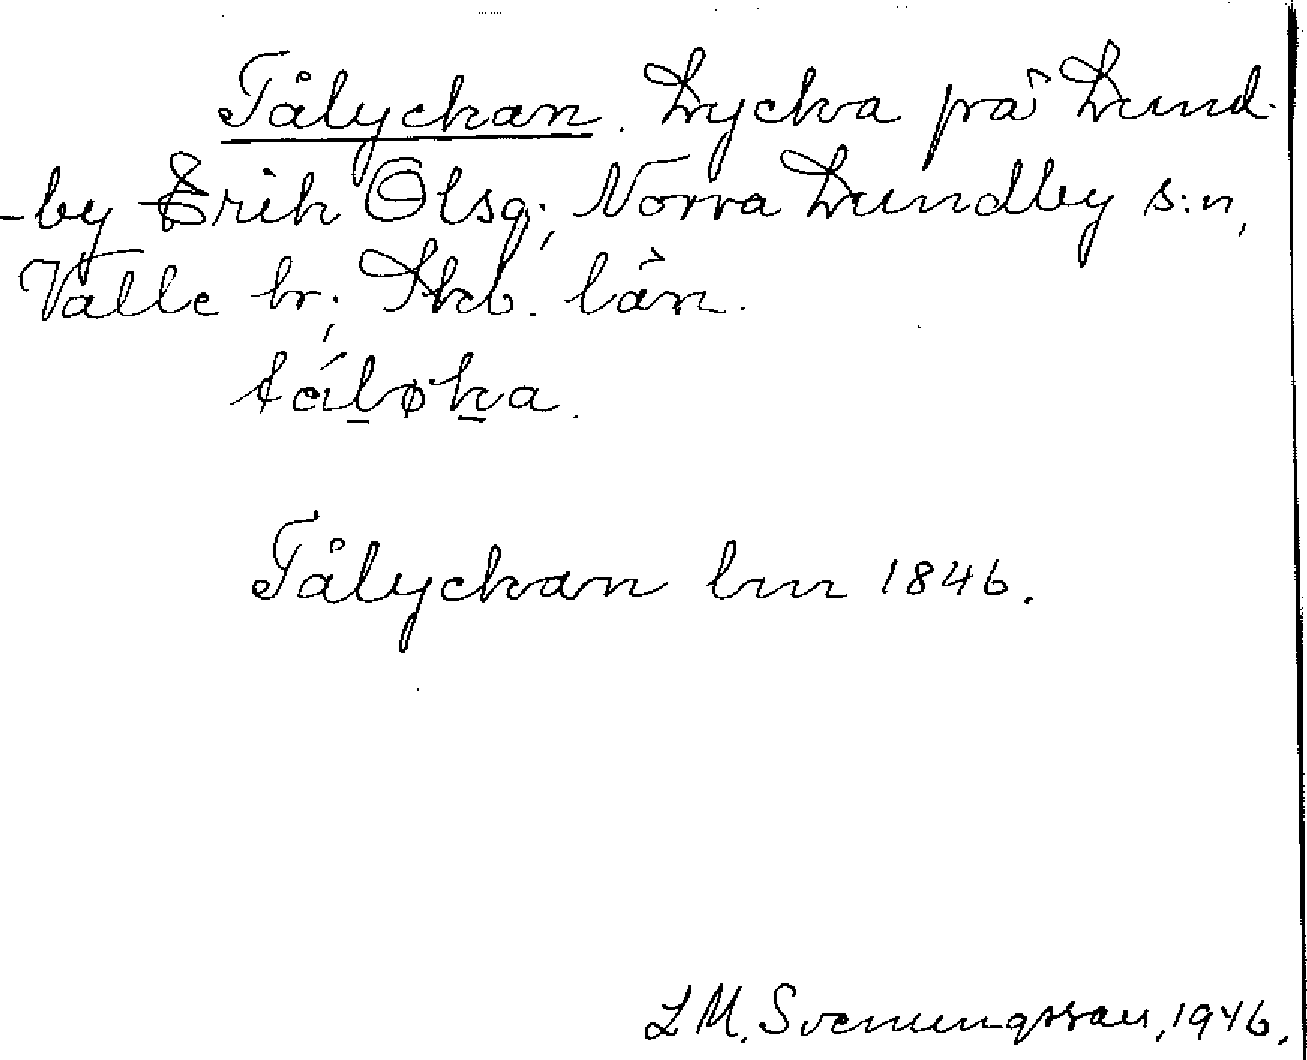 Tålyckan. Lycka på Lund-
-by Erik Olsg; Norra Lundby s:n,
Valle hr; Skb. län.
táløka.
Tålyckan lm 1846.
L M. Svenungsson, 1946.